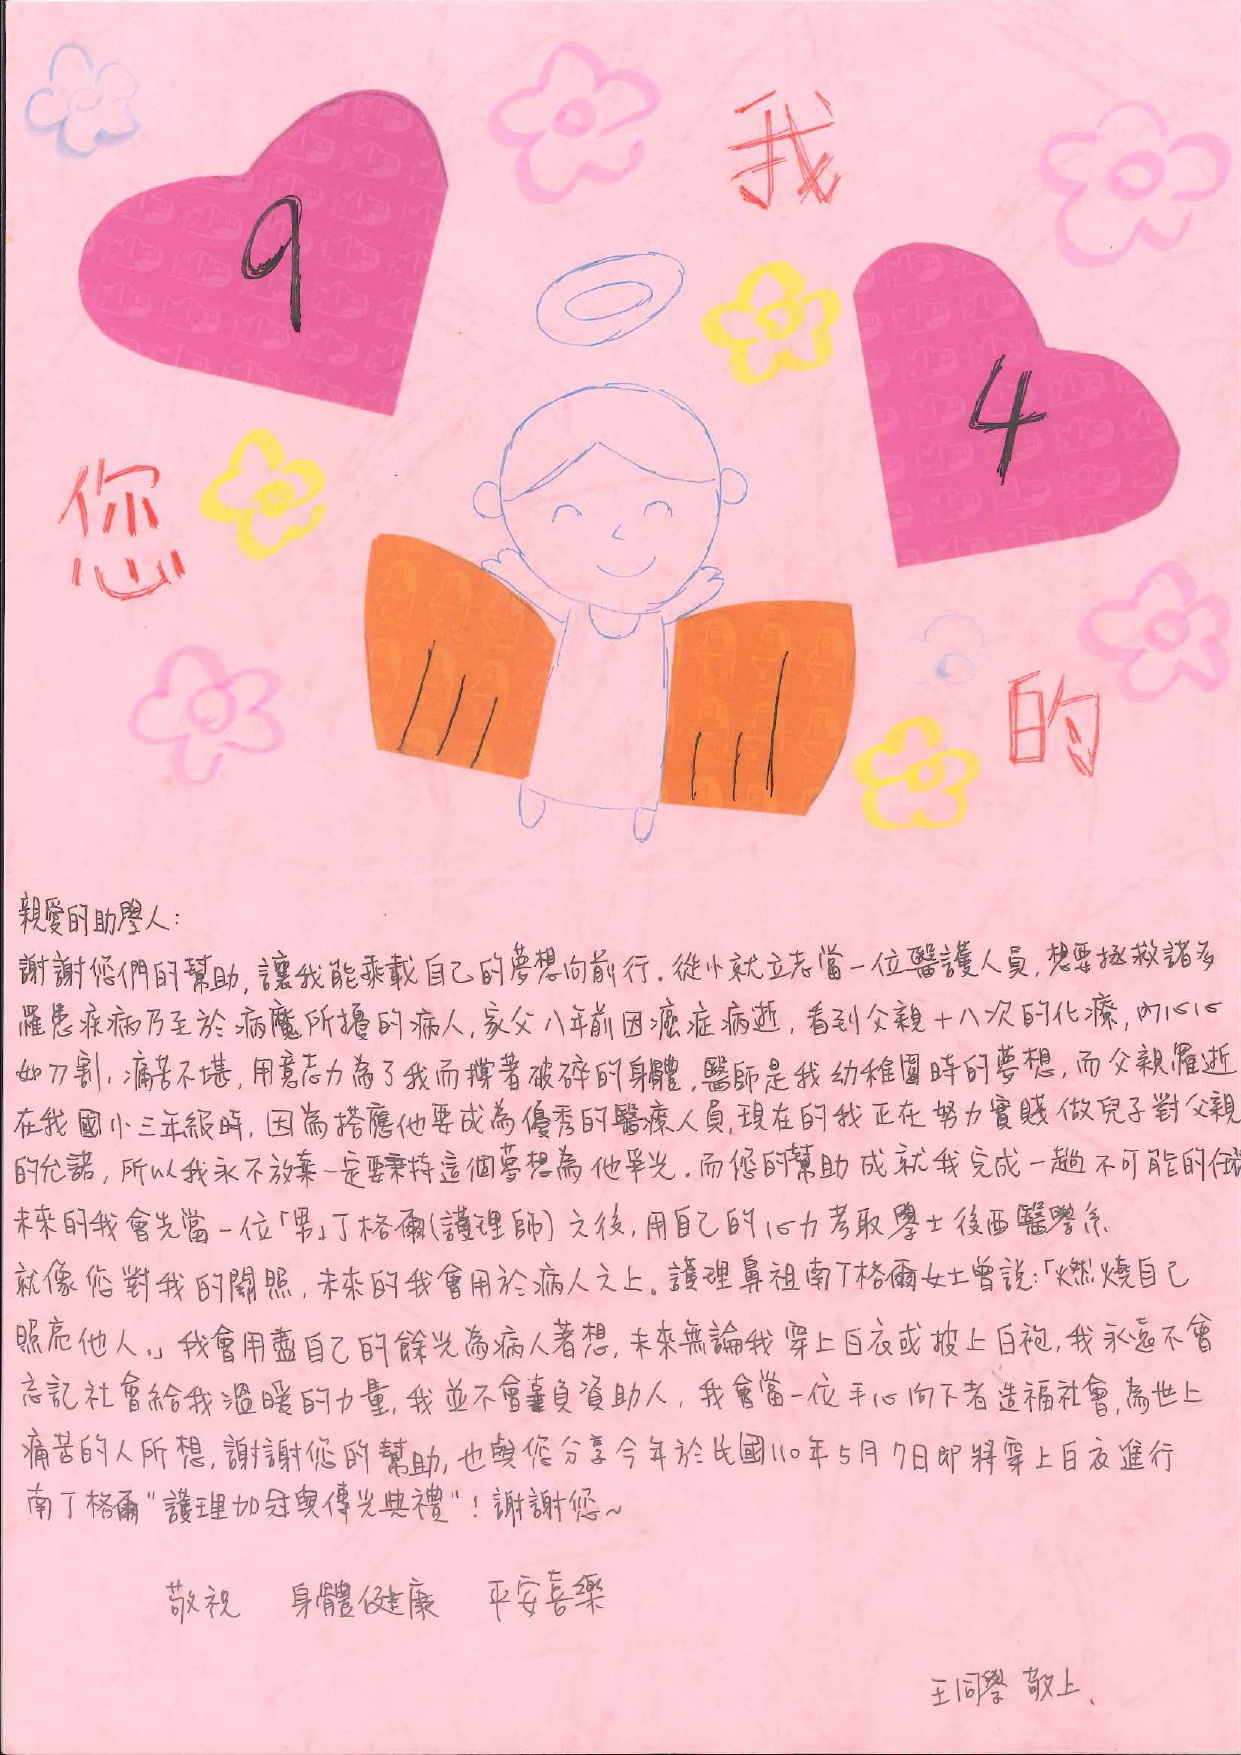 9
我
4
您
的
親愛的助學人：
謝謝您們的幫助，讓我能乘載自己的夢想向前行．從小就立志當一位醫護人員，想要拯救諸多
罹患疾病乃至於病魔所擾的病人，家父八年前因癌症病逝，看到父親十八次的化療，內心心
如刀割，痛苦不堪，用意志力為了我而撐著破碎的身體，醫師是我幼稚園時的夢想，而父親罹逝
在我國小三年級時，因為搭應他要成為優秀的醫療人員，現在的我正在努力實踐做兒子對父親
的允諾，所以我永不放棄一定要秉持這個夢想為他爭光．而您的幫助成就我完成一趟不可能的任
未來的我會先當一位「男」丁格爾(護理師)之後，用自己的心力考取學士後西醫學系
就像您對我的關照，未來的我會用於病人之上。護理鼻祖南丁格爾女士曾說：「燃燒自己
照亮他人。」我會用盡自己的餘光為病人著想，未來無論我穿上白衣或披上白袍，我永遠不會
忘記社會給我溫暖的力量，我並不會辜負資助人，我會當一位手心向下者造福社會，為世上
痛苦的人所想，謝謝您的幫助，也與您分享今年於民國110年5月7日即將穿上白衣進行
南丁格爾"護理加冠與傳光典禮"！謝謝您~
敬祝 身體健康 平安喜樂
王同學 敬上、